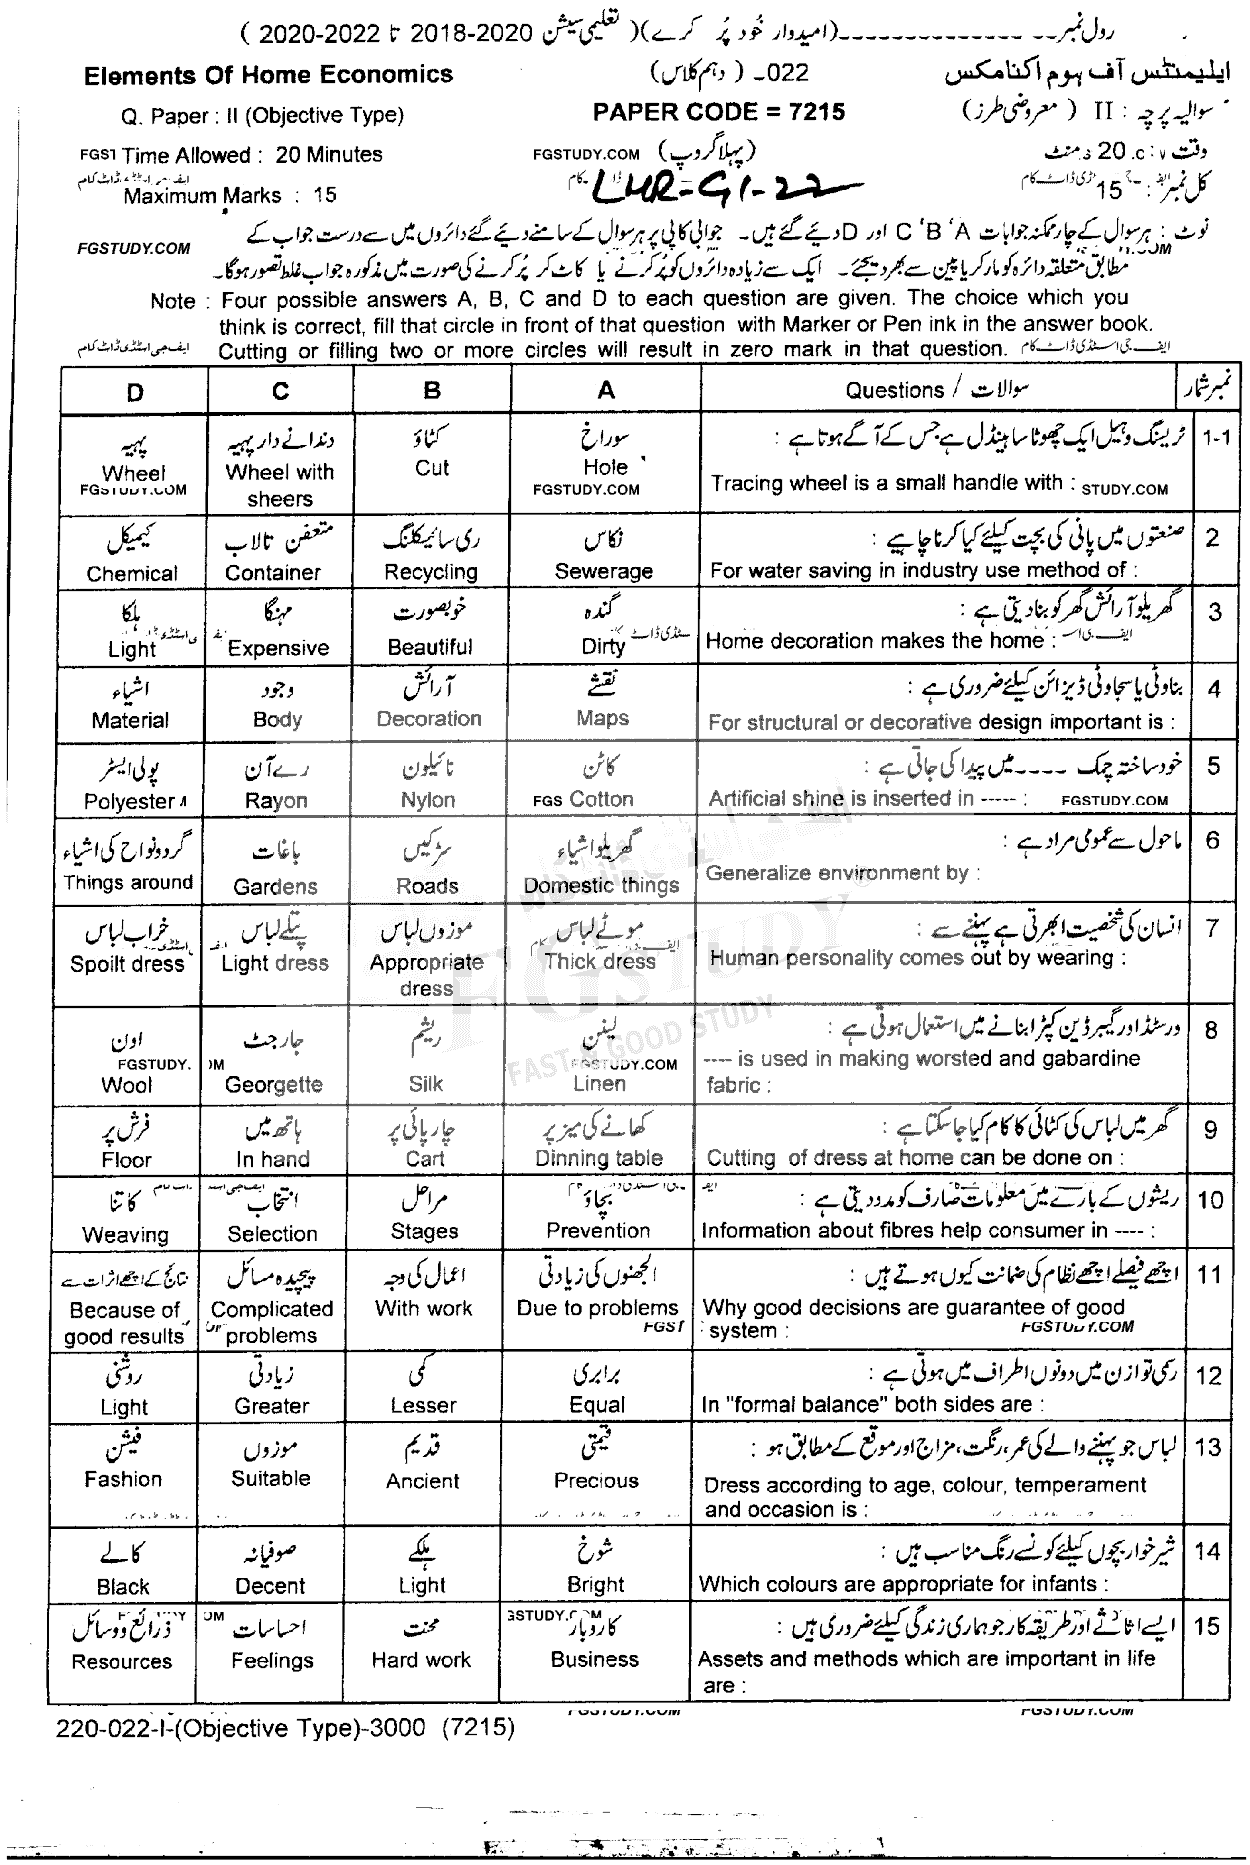 رول نمبر۔۔۔۔۔۔۔۔۔۔۔۔۔۔۔۔(امیدوار خود پُر کرے)( تعلیمی سیشن 2018-2020 تا 2020-2022 )
ایلیمنٹس آف ہوم اکنامکس 022- (دہم کلاس) Elements Of Home Economics
سوالیہ پرچہ : II (معروضی طرز) PAPER CODE = 7215 Q. Paper : II (Objective Type)
وقت : 20 منٹ (پہلا گروپ) FGSTUDY.COM Time Allowed : 20 Minutes
کل نمبر : 15 LHR-G1-22 Maximum Marks : 15
نوٹ : ہر سوال کے چار ممکنہ جوابات A ‘B ‘C اور D دیئے گئے ہیں۔ جوابی کاپی پر ہر سوال کے سامنے دیئے گئے دائروں میں سے درست جواب کے FGSTUDY.COM
مطابق متعلقہ دائرہ کو مارکر یا پین سے بھر دیجئے۔ ایک سے زیادہ دائروں کو پُر کرنے یا کاٹ کر پُر کرنے کی صورت میں مذکورہ جواب غلط تصور ہوگا۔
Note : Four possible answers A, B, C and D to each question are given. The choice which you
think is correct, fill that circle in front of that question with Marker or Pen ink in the answer book.
Cutting or filling two or more circles will result in zero mark in that question. ایف جی اسٹڈی ڈاٹ کام
D C B A Questions / سوالات نمبر شمار
1-1 ٹریسنگ وہیل ایک چھوٹا سا ہینڈل ہے جس کے آگے ہوتا ہے : سوراخ کٹاؤ دندانے دار پہیہ پہیہ
Wheel Wheel with Cut Hole Tracing wheel is a small handle with : STUDY.COM
FGSTUDY.COM sheers FGSTUDY.COM
2 صنعتوں میں پانی کی بچت کیلئے کیا کرنا چاہیے : نکاس ری سائیکلنگ متعفن تالاب کیمیکل
Chemical Container Recycling Sewerage For water saving in industry use method of :
3 گھریلو آرائش گھر کو بنا دیتی ہے : گندہ خوبصورت مہنگا ہلکا
Light Expensive Beautiful Dirty Home decoration makes the home :
4 بناوٹی یا سجاوٹی ڈیزائن کیلئے ضروری ہے : نقشے آرائش وجود اشیاء
Material Body Decoration Maps For structural or decorative design important is :
5 خود ساختہ چمک ---- میں پیدا کی جاتی ہے : کاٹن نائیلون رے آن پولی ایسٹر
Polyester Rayon Nylon FGS Cotton Artificial shine is inserted in ----- : FGSTUDY.COM
6 ماحول سے عمومی مراد ہے : گھریلو اشیاء سڑکیں باغات گردونواح کی اشیاء
Things around Gardens Roads Domestic things Generalize environment by :
7 انسان کی شخصیت ابھرتی ہے پہننے سے : موٹے لباس موزوں لباس پتلے لباس خراب لباس
Spoilt dress Light dress Appropriate Thick dress Human personality comes out by wearing :
dress
FGSTUDY
FAST & GOOD STUDY
8 ورسٹڈ اور گیبرڈین کپڑا بنانے میں استعمال ہوتی ہے : لینن ریشم جارجٹ اون
FGSTUDY. OM FGSTUDY.COM ---- is used in making worsted and gabardine
Wool Georgette Silk Linen fabric :
9 گھر میں لباس کی کٹائی کا کام کیا جا سکتا ہے : کھانے کی میز پر چارپائی پر ہاتھ میں فرش پر
Floor In hand Cart Dinning table Cutting of dress at home can be done on :
10 ریشوں کے بارے میں معلومات صارف کو مدد دیتی ہے : بچاؤ مراحل انتخاب کاتنا
Weaving Selection Stages Prevention Information about fibres help consumer in ---- :
11 اچھے فیصلے اچھے نظام کی ضمانت کیوں ہوتے ہیں : الجھنوں کی زیادتی اعمال کی وجہ پیچیدہ مسائل نتائج کے اچھے اثرات سے
Because of Complicated With work Due to problems Why good decisions are guarantee of good
good results problems system : FGSTUDY.COM
12 رسمی توازن میں دونوں اطراف میں ہوتی ہے : برابری کمی زیادتی روشنی
Light Greater Lesser Equal In "formal balance" both sides are :
13 لباس جو پہننے والے کی عمر، رنگت، مزاج اور موقع کے مطابق ہو : قیمتی قدیم موزوں فیشن
Fashion Suitable Ancient Precious Dress according to age, colour, temperament
and occasion is :
14 شیر خوار بچوں کیلئے کونسے رنگ مناسب ہیں : شوخ ہلکے صوفیانہ کالے
Black Decent Light Bright Which colours are appropriate for infants :
15 ایسے اثاثے اور طریقہ کار جو ہماری زندگی کیلئے ضروری ہیں : کاروبار محنت احساسات ذرائع و وسائل
Resources Feelings Hard work Business Assets and methods which are important in life
are :
220-022-I-(Objective Type)-3000 (7215) FGSTUDY.COM FGSTUDY.COM